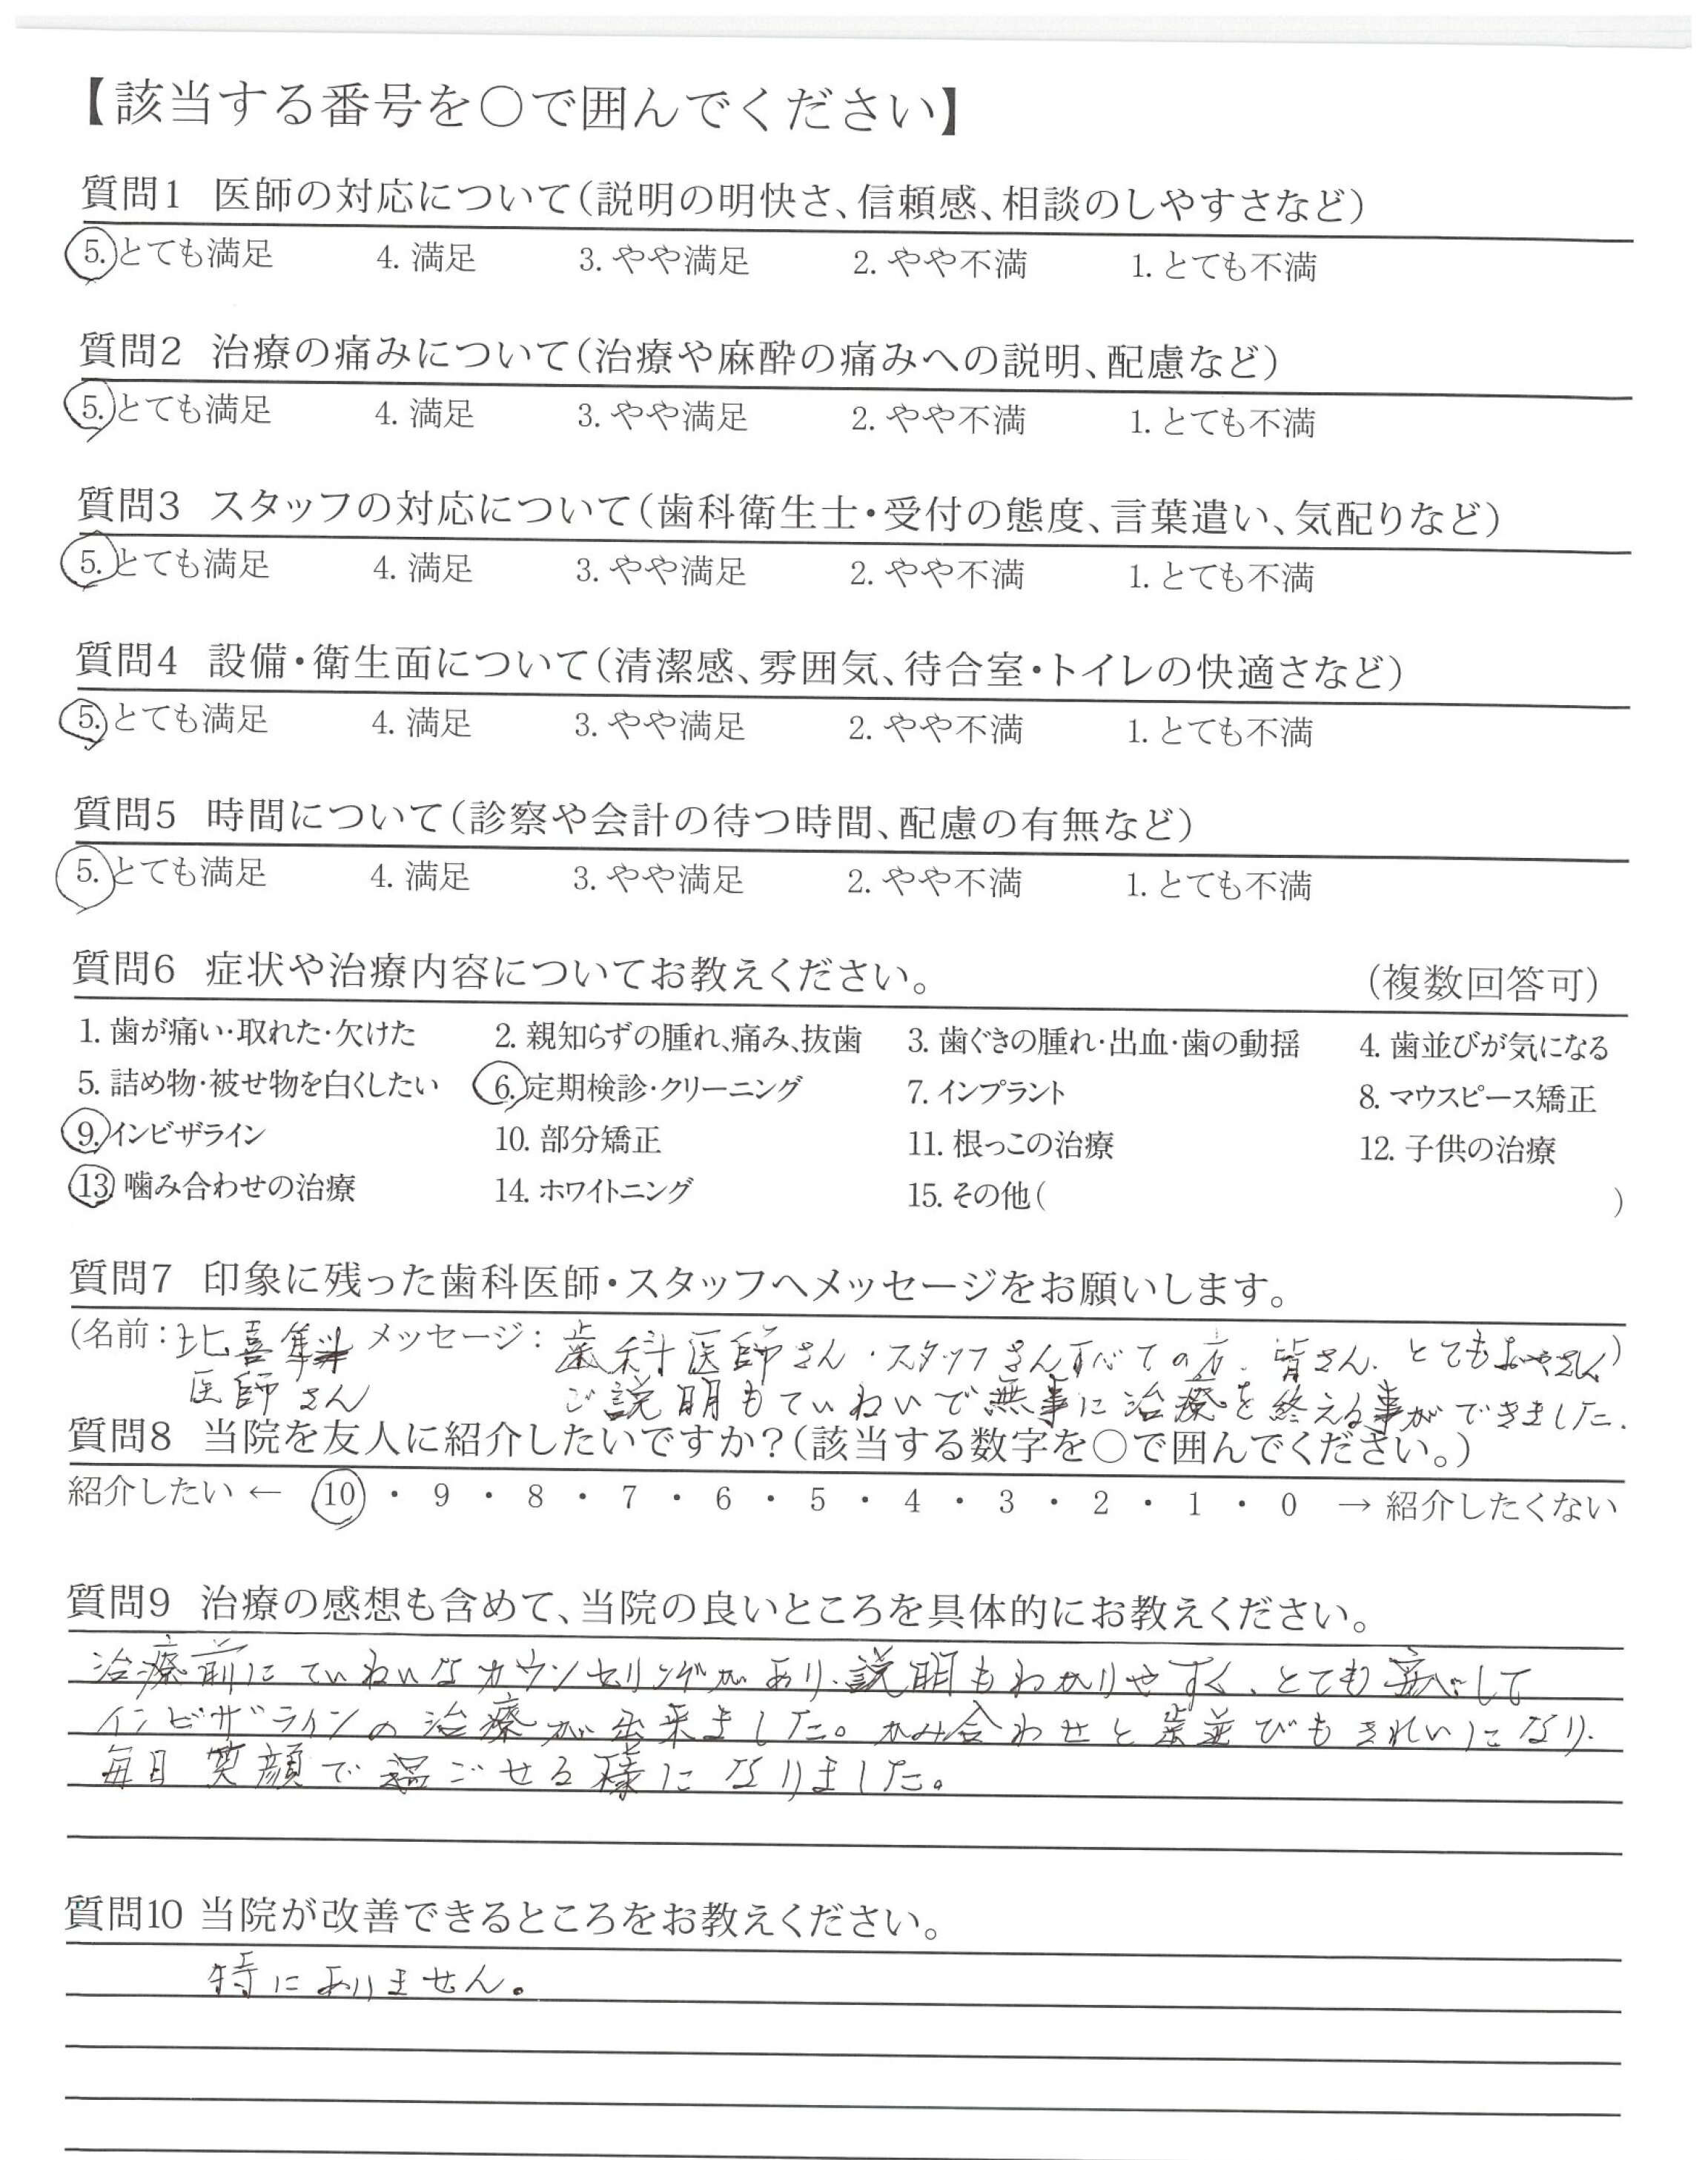 【該当する番号を○で囲んでください】
質問1 医師の対応について(説明の明快さ、信頼感、相談のしやすさなど)
5. とても満足 4. 満足 3. やや満足 2. やや不満 1. とても不満
質問2 治療の痛みについて(治療や麻酔の痛みへの説明、配慮など)
5. とても満足 4. 満足 3. やや満足 2. やや不満 1. とても不満
質問3 スタッフの対応について(歯科衛生士・受付の態度、言葉遣い、気配りなど)
5. とても満足 4. 満足 3. やや満足 2. やや不満 1. とても不満
質問4 設備・衛生面について(清潔感、雰囲気、待合室・トイレの快適さなど)
5. とても満足 4. 満足 3. やや満足 2. やや不満 1. とても不満
質問5 時間について(診察や会計の待つ時間、配慮の有無など)
5. とても満足 4. 満足 3. やや満足 2. やや不満 1. とても不満
質問6 症状や治療内容についてお教えください。 (複数回答可)
1. 歯が痛い・取れた・欠けた 2. 親知らずの腫れ、痛み、抜歯 3. 歯ぐきの腫れ・出血・歯の動揺 4. 歯並びが気になる
5. 詰め物・被せ物を白くしたい 6. 定期検診・クリーニング 7. インプラント 8. マウスピース矯正
9. インビザライン 10. 部分矯正 11. 根っこの治療 12. 子供の治療
13. 噛み合わせの治療 14. ホワイトニング 15. その他( )
質問7 印象に残った歯科医師・スタッフへメッセージをお願いします。
(名前: 比喜 メッセージ: 歯科医師さん・スタッフさんすべての方、皆さん、とてもおやさしく)
医師さん ご説明もていねいで無事に治療を終える事ができました.
質問8 当院を友人に紹介したいですか?(該当する数字を○で囲んでください。)
紹介したい ← 10 ・ 9 ・ 8 ・ 7 ・ 6 ・ 5 ・ 4 ・ 3 ・ 2 ・ 1 ・ 0 → 紹介したくない
質問9 治療の感想も含めて、当院の良いところを具体的にお教えください。
治療前にていねいなカウンセリングがあり、説明もわかりやすく、とても安心して
インビザラインの治療が出来ました。かみ合わせと歯並びもきれいになり、
毎日笑顔で過ごせる様になりました。
質問10 当院が改善できるところをお教えください。
特にありません。